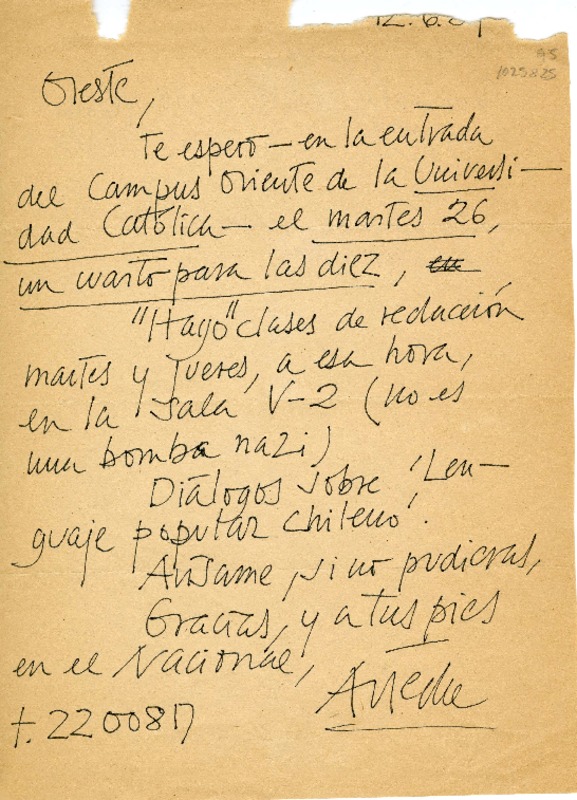 12.6.
A5
1025825
Oreste,
Te espero – en la entrada
del Campus Oriente de la Universi-
dad Católica – el martes 26,
un cuarto para las diez, en
"Hago" clases de redacción
martes y jueves, a esa hora,
en la Sala V-2 (no es
una bomba nazi)
Diálogos sobre 'Len-
guaje popular chileno'.
Avísame, si no pudieras,
Gracias, y a tus pies
en el Nacional,
t. 220087